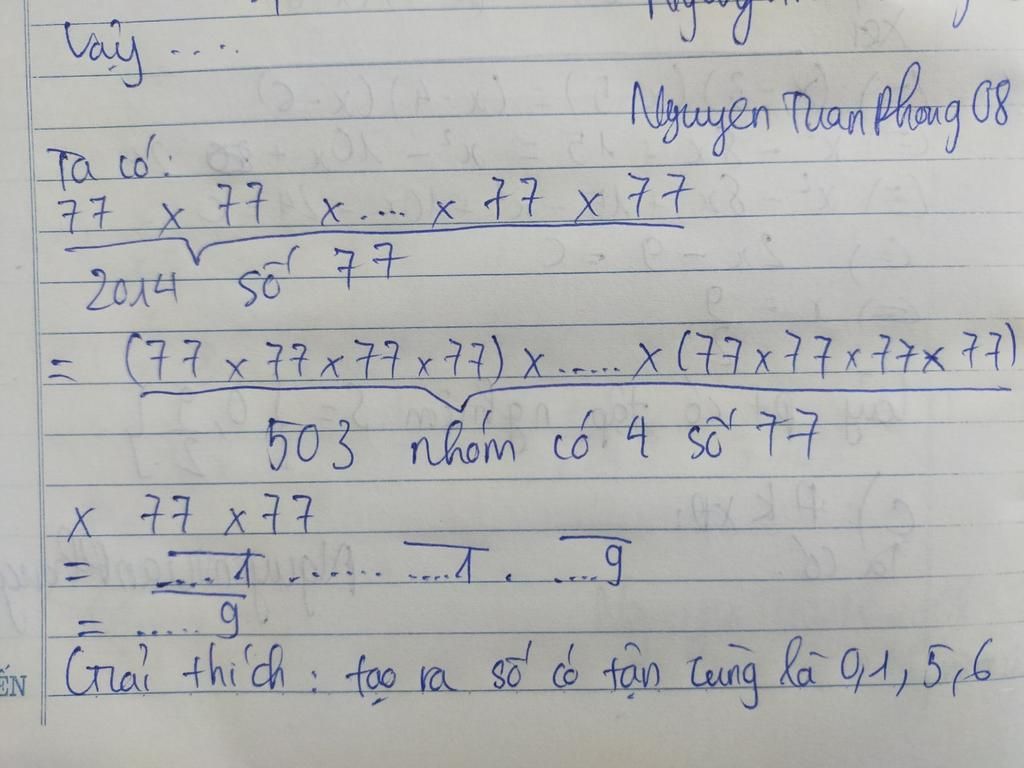 Vậy ....
Nguyen Tuan Phong 08
Ta có:
77 x 77 x .... x 77 x 77
2014 số 77
= (77 x 77 x 77 x 77) x ..... x (77 x 77 x 77 x 77)
503 nhóm có 4 số 77
x 77 x 77
= ....1 ...... ....1 . ....9
= ..... 9
ẾN
Giải thích : tạo ra số có tận cùng là 0,1, 5,6